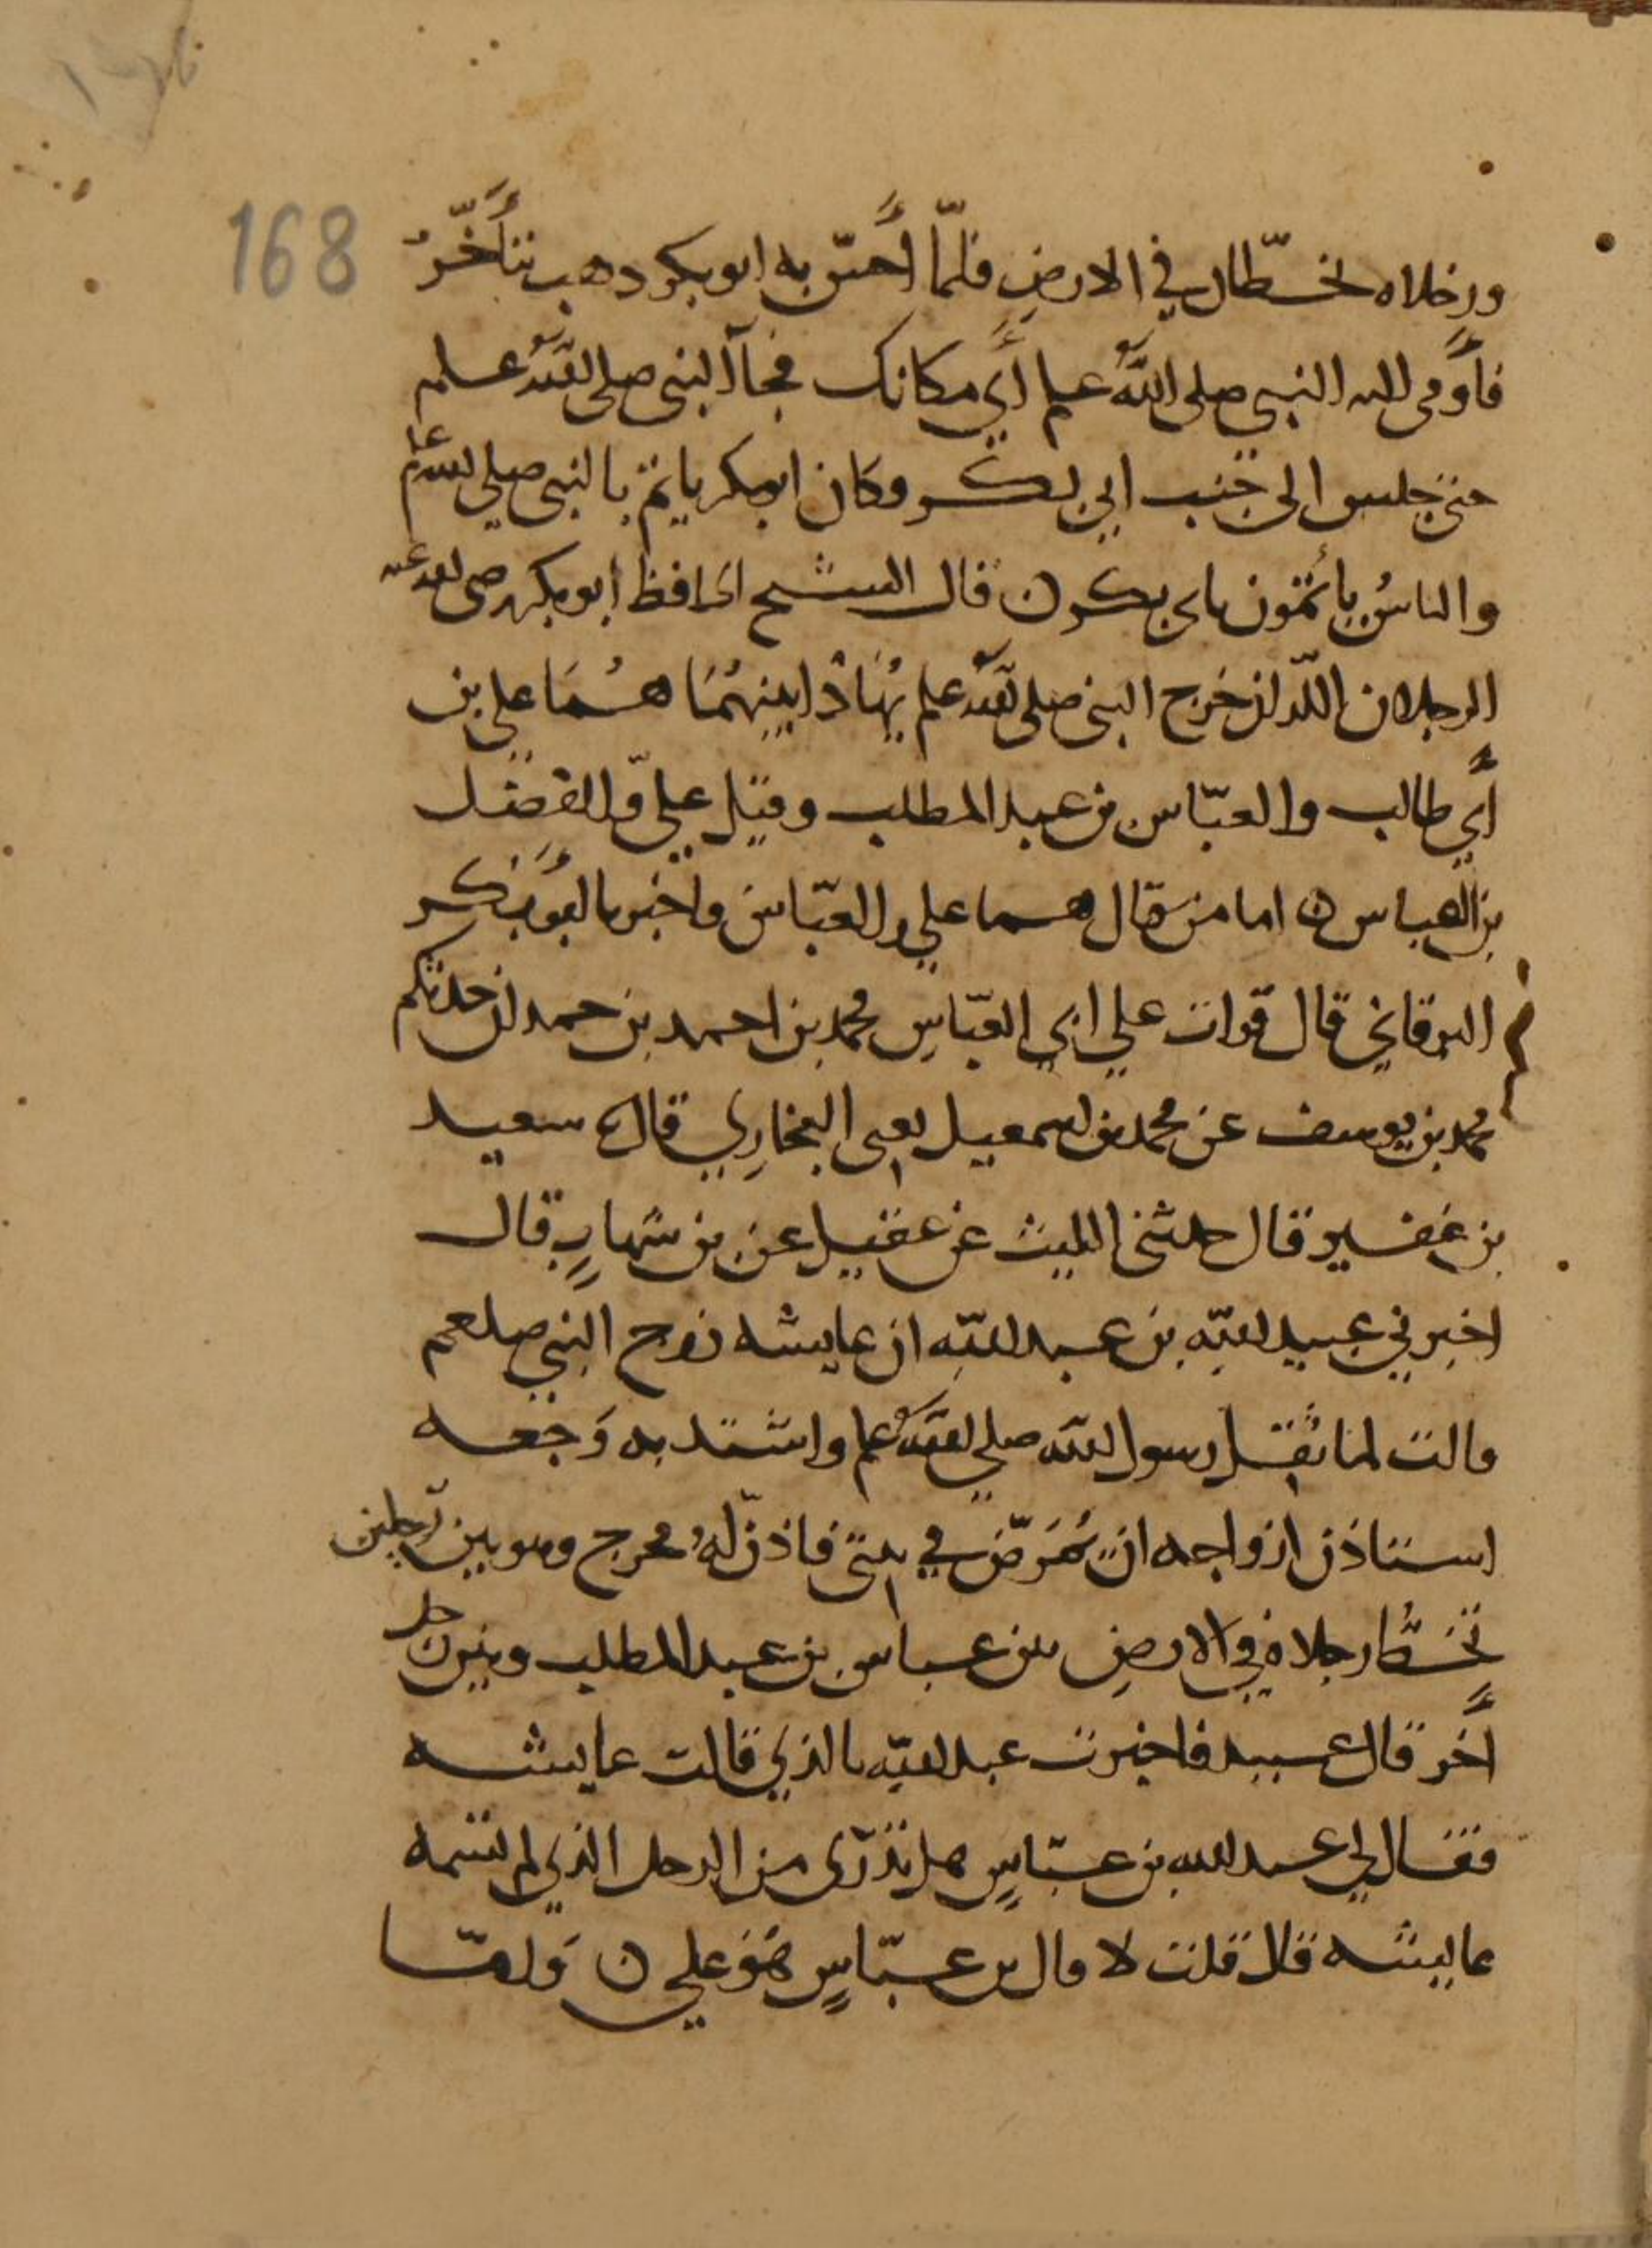 168
ورجلاه تخطان في الارض فلما أحس به ابو بكر ذهب يتأخر
فأومى اليه النبي صلى الله علم أي مكانك فجآ النبي صلى الله علىه
حتى جلس الى جنب ابي بكر وكان ابو بكر ياتم بالنبي صلى الله علم
والناس يأتمون بابي بكر ن قال الشيخ الحافظ أبو بكر رضي الله عنه
الرجلان اللذان خرج النبي صلى الله علم يهاذا بينهما هما علي بن
أبي طالب والعباس بن عبد المطلب وقيل علي والفضل
بن العباس ن اما من قال هما علي والعباس فأخبرنا أبو بكر
البرقاني قال قرات علي ابي العباس محمد بن احمد بن حمدان حدثكم
محمد بن يوسف عن محمد بن اسمعيل يعني البخاري قال سعيد
بن عفير قال حدثني الليث عن عقيل عن بن شهاب قال
اخبرني عبيد الله بن عبد الله ان عايشه زوج النبي صلعم
قالت لما ثقل رسول الله صلي الله علم واشتد به وجعه
استاذن ازواجه ان يمرض في بيتي فاذن له فخرج وهو بين رجلين
تخط رجلاه في الارض بين عباس بن عبد المطلب وبين رجل
أخر قال عبيد فاخبرت عبد الله بالذي قالت عايشه
فقال لي عبد الله بن عباس هل تدرى من الرجل الذي لم تسمه
عايشه قال قلت لا قال بن عباس هو علي ن ولما